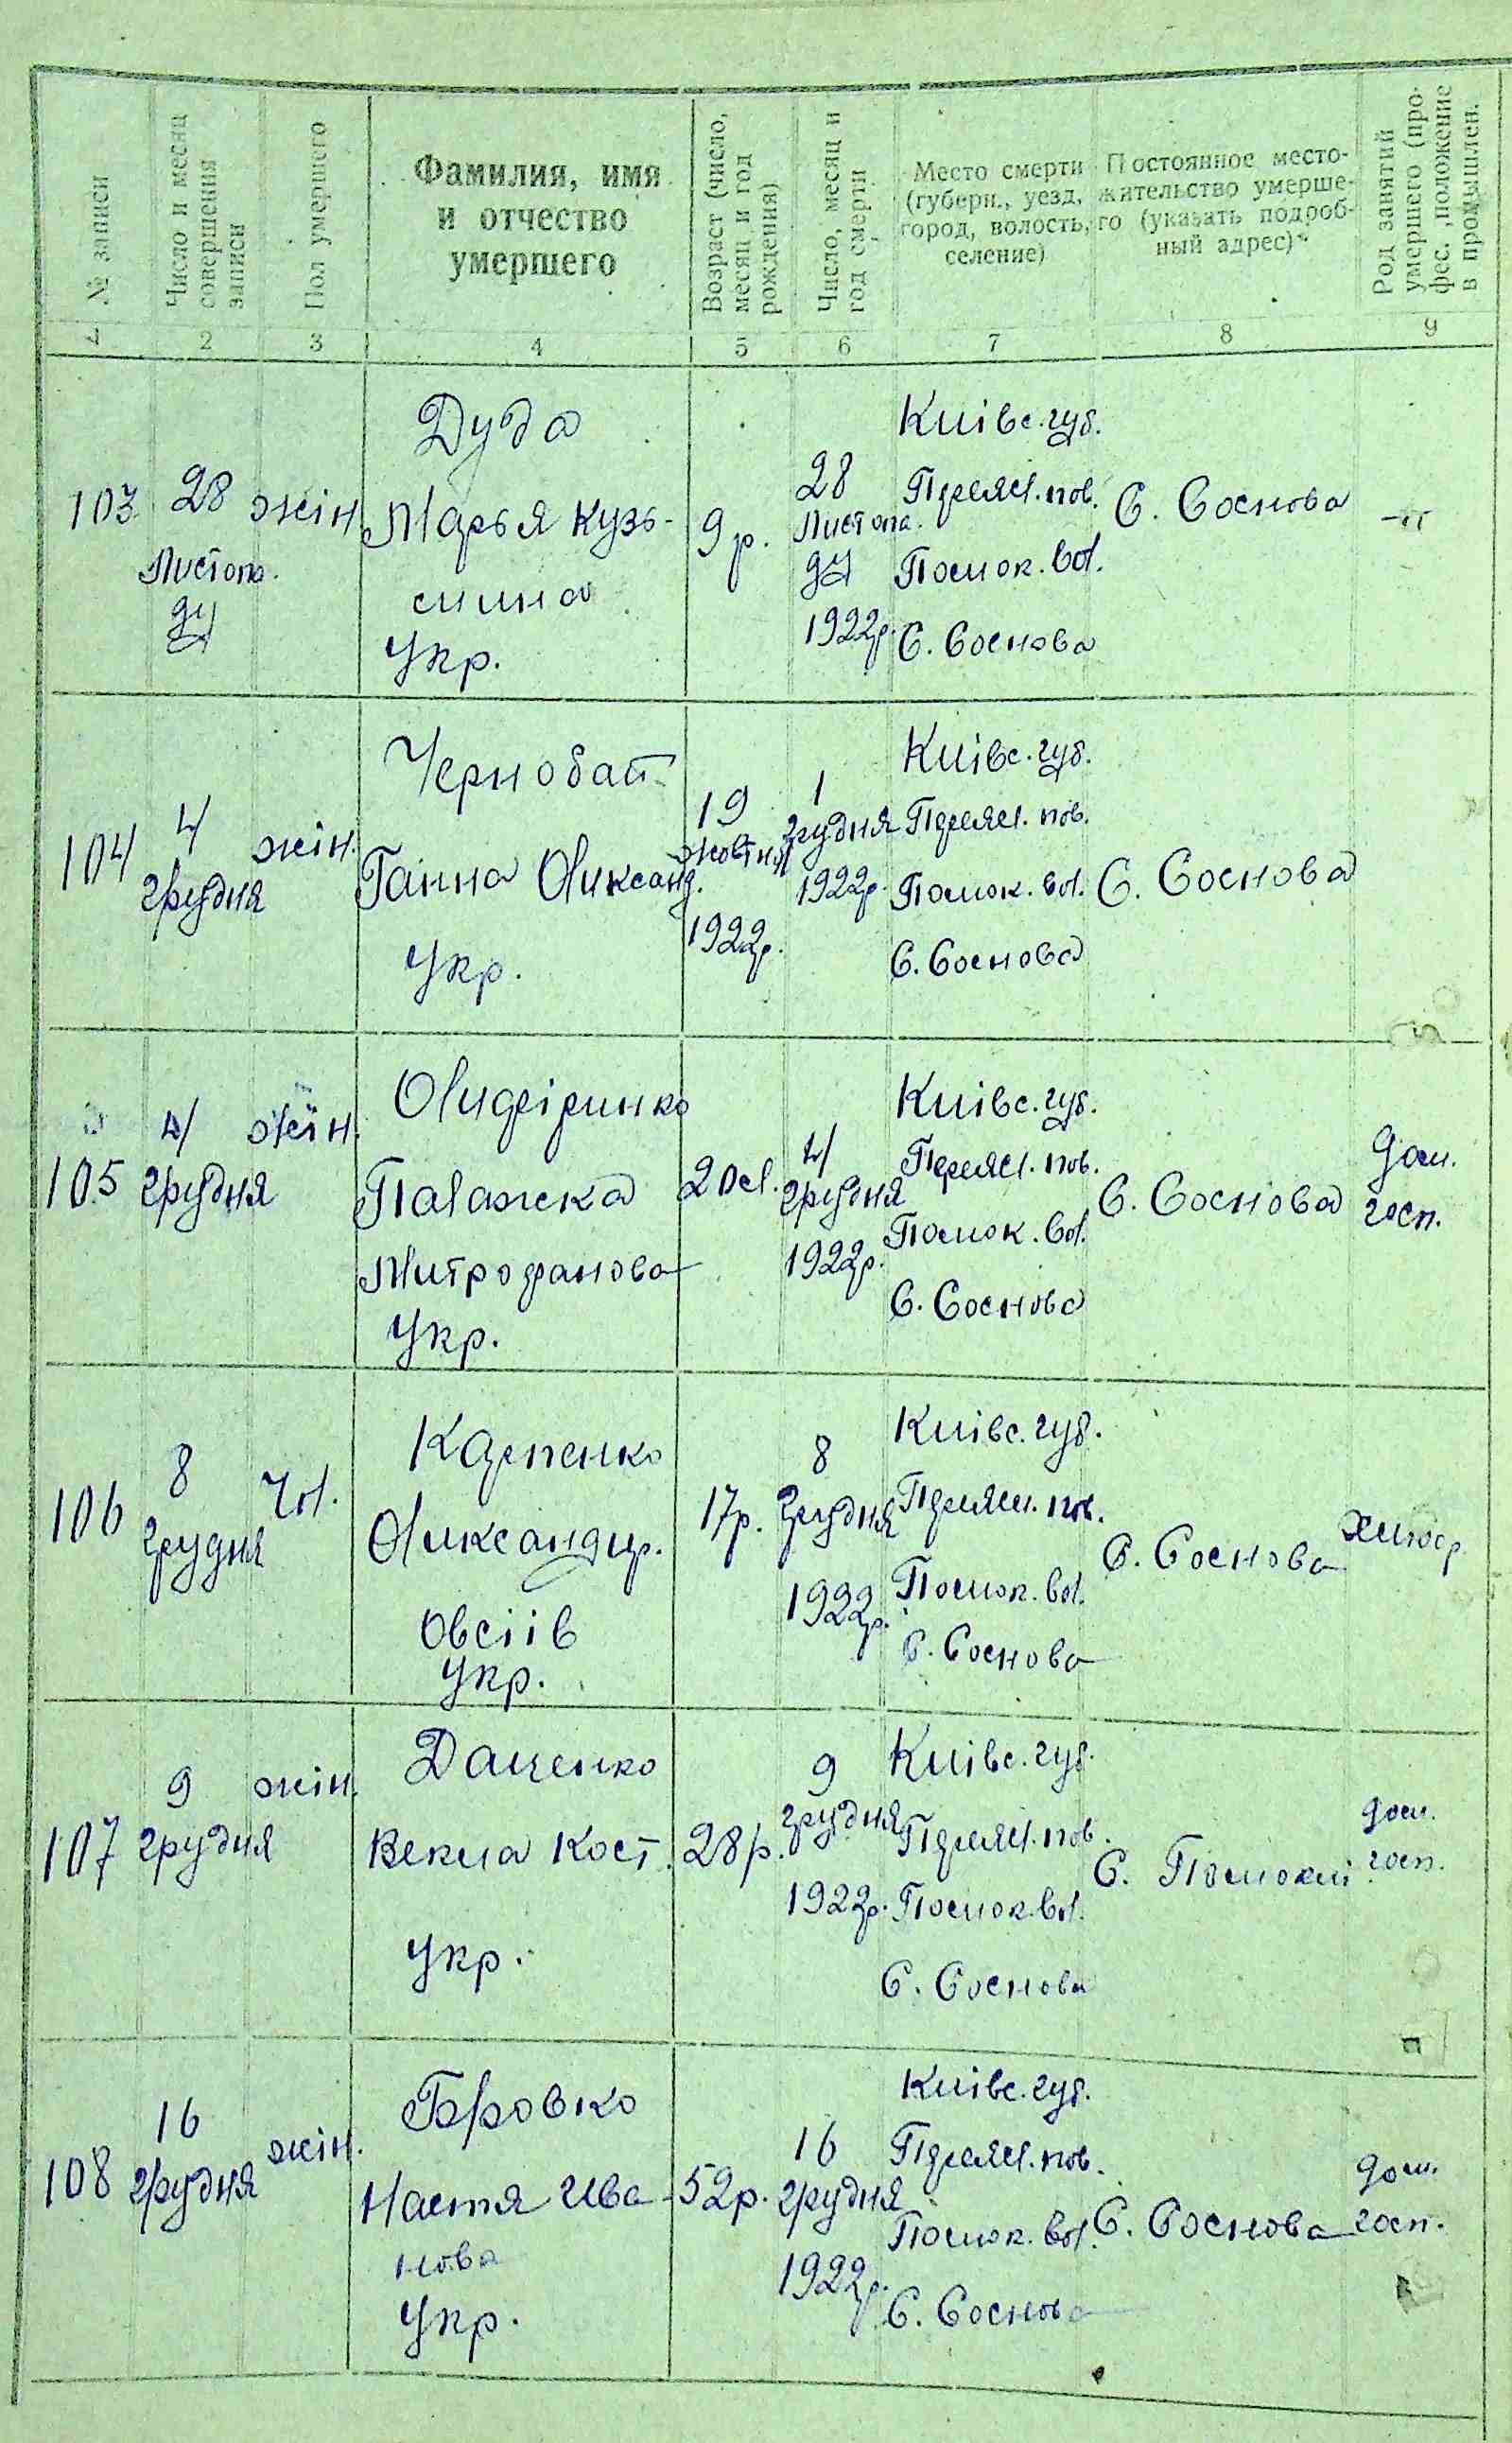 № записи
Число и месяц совершения записи
Пол умершего
Фамилия, имя
и отчество
умершего
Возраст (число, месяц и год рождения)
Число, месяц и год смерти
Место смерти
(губерн., уезд,
город, волость,
селение)
Постоянное место-
жительство умерше-
го (указать подроб-
ный адрес)
Род занятий умершего (про-
фес., положение в промышлен.
1 2 3 4 5 6 7 8 9
103
28
Листопа.
ду
жін.
Дуда
Марья Кузь-
мина
Укр.
9 р.
28
Листопа.
ду
1922р.
Київс. губ.
Переясл. пов.
Помок. вол.
С. Соснова
С. Соснова
-"-
104
4
грудня
жін.
Чернобай
Ганна Олександ.
Укр.
19
жовтня
1922р.
1
грудня
1922р.
Київс. губ.
Переясл. пов.
Помок. вол.
С. Соснова
С. Соснова
105
4
грудня
жін.
Олифіринко
Палажка
Митрофанова
Укр.
20 л.
4
грудня
1922р.
Київс. губ.
Переясл. пов.
Помок. вол.
С. Соснова
С. Соснова
дом.
госп.
106
8
грудня
чол.
Карпенко
Олександр.
Овсіїв
Укр.
17р.
8
грудня
1922р.
Київс. губ.
Переясл. пов.
Помок. вол.
С. Соснова
С. Соснова
хлібор.
107
9
грудня
жін.
Даценко
Векла Кост.
Укр.
28р.
9
грудня
1922р.
Київс. губ.
Переясл. пов.
Помок. вол.
С. Соснова
С. Помоклі
дом.
госп.
108
16
грудня
жін.
Бровко
Настя Ива-
нова
Укр.
52р.
16
грудня
1922р.
Київс. губ.
Переясл. пов.
Помок. вол.
С. Соснова
С. Соснова
дом.
госп.